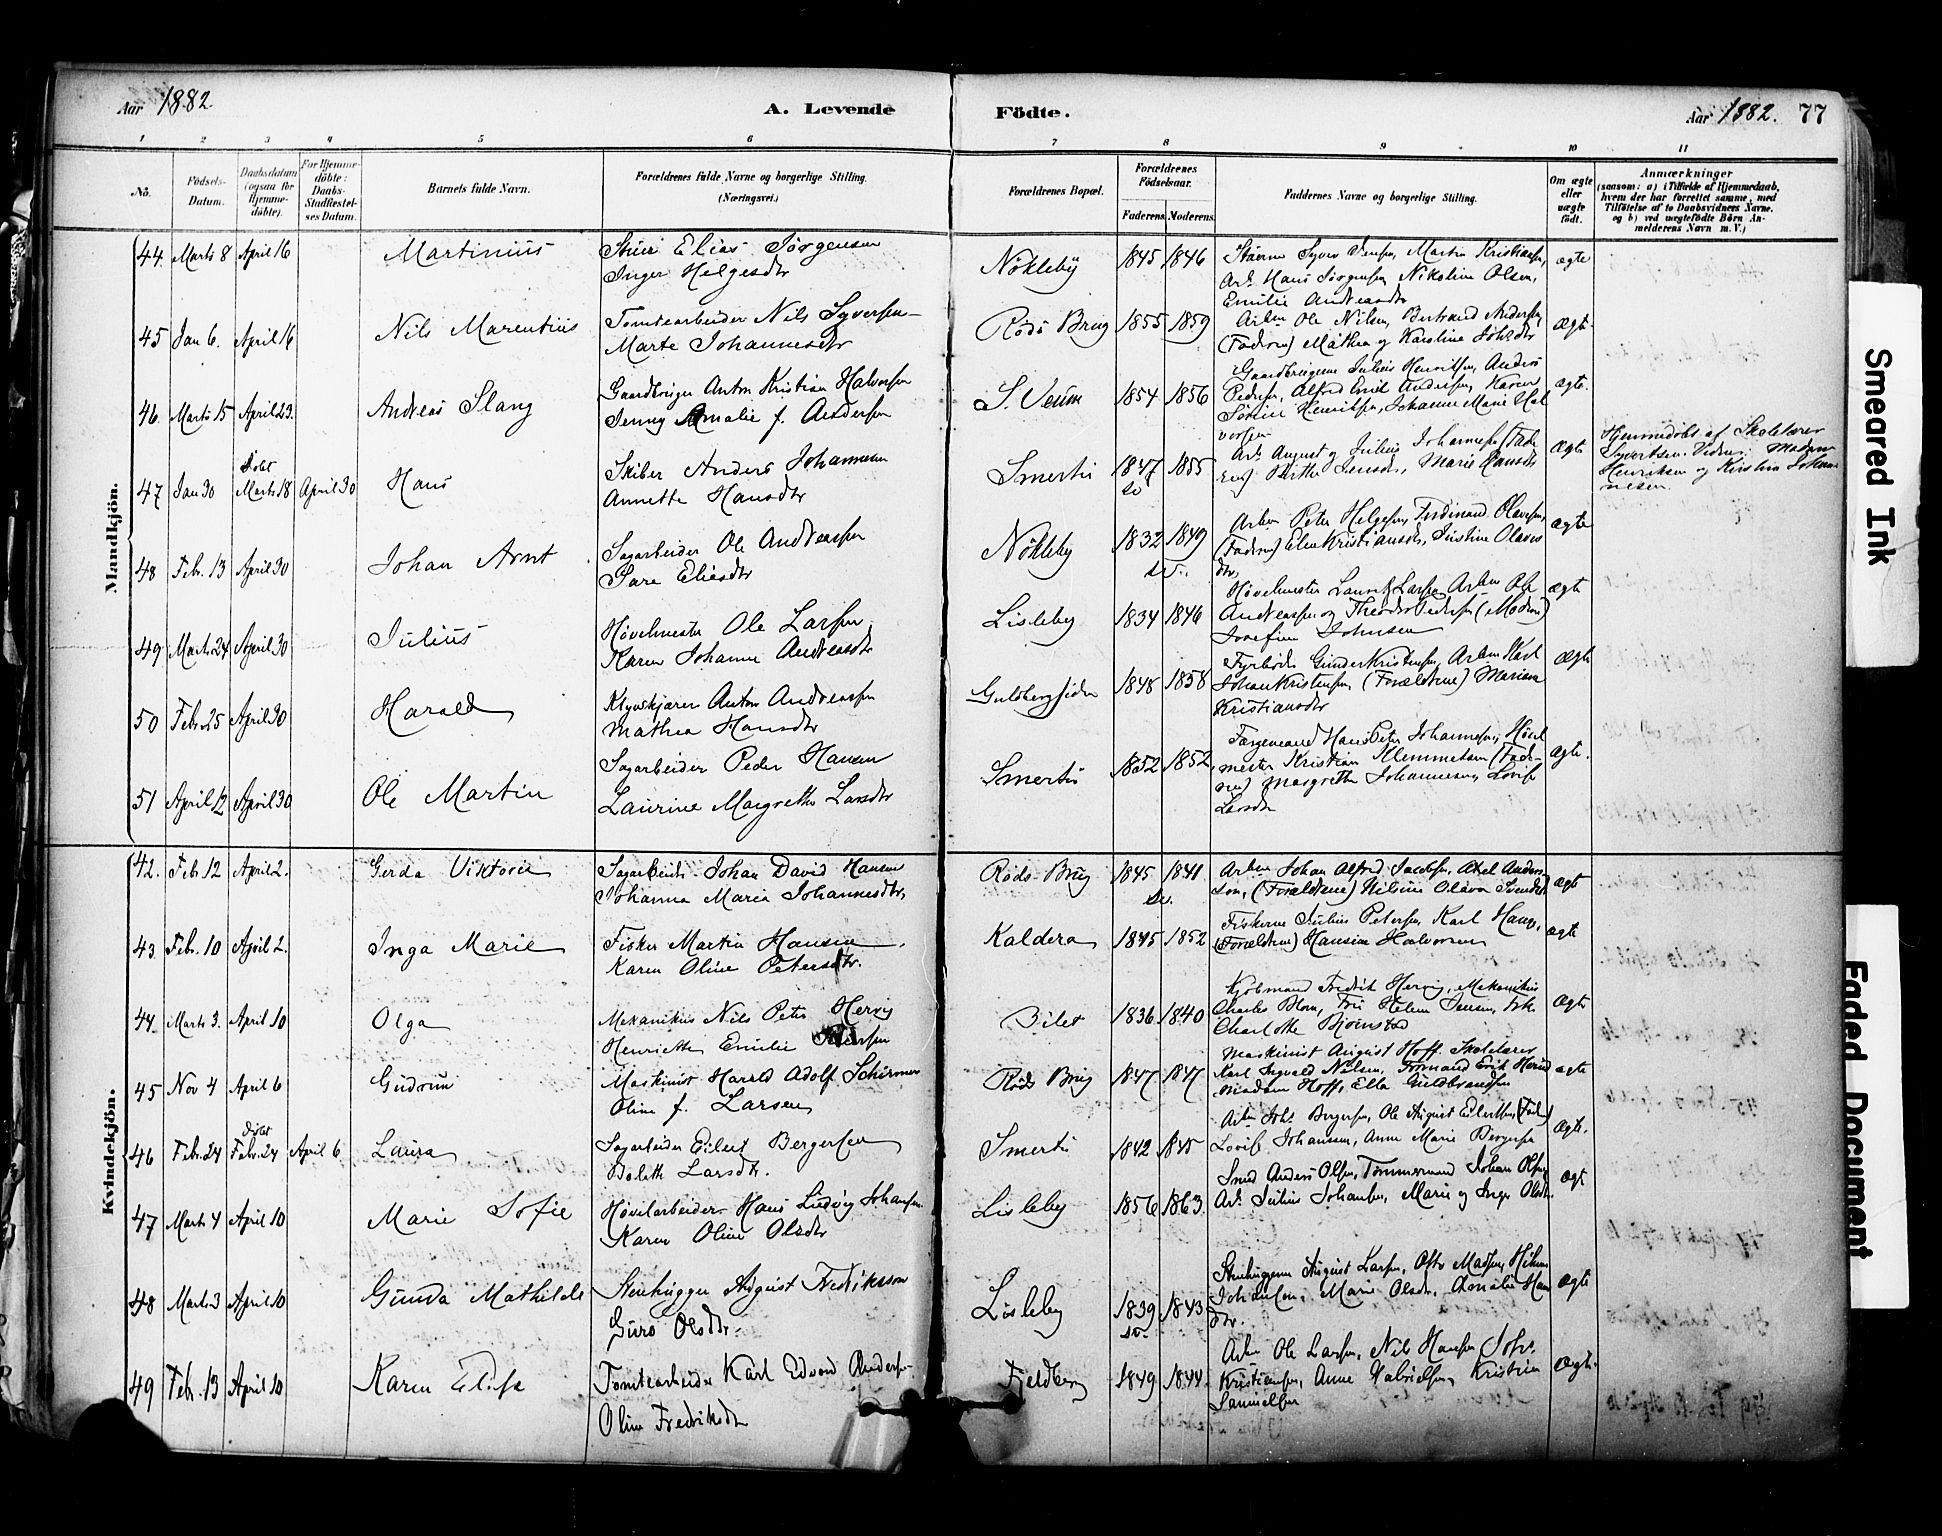 Aar 1882
A. Levende
Födte.
Aar 1882. 77
1 2 3 4 5 6 7 8 9 10 11
No.
Födsels-Datum.
Daabsdatum (ogsaa for Hjemme-döbte).
For Hjemme-döbte: Daabs-Stadfæstel-ses Datum.
Barnets fulde Navn.
Forældrenes fulde Navne og borgerlige Stilling. (Næringsvei.)
Forældrenes Bopæl.
Forældrenes Födselsaar.
Faderens. Moderens.
Faddernes Navne og borgerlige Stilling.
Om ægte eller uægte födt.
Anmærkninger
(saasom: a) i Tilfælde af Hjemmedaab, hvem der har forrettet samme, med Tilföielse af to Daabsvidners Navne, og b) ved uægtefödte Börn An-melderens Navn m. V.)
Mandkjön.
44. Marts 8 April 16 Martinius
Elias Jörgensen
Inger Helgesdtr
Nökleby 1845 1846
Syver Jensen, Martin Kristiansen,
Arb. Hans Jörgensen, Nikoline Olsen,
Emilie Andreasdtr
ægte
45 Jan 6. April 16 Nils Marentius
Tomtearbeider Nils Syversen
Marte Johannesdtr
Röds Brug 1855 1859
Arbm Ole Nilsen, Bertrand Andersen,
(Faderen) Mathea og Karoline Johsdtr
Ægte.
46. Marts 15 April 23. Andreas Slang
Gaardbruger Anton Kristian Halvorsen
Jenny Amalie f. Andersen
S. Veum 1854 1856
Gaardbrugerne Julius Henriksen, Anders
Pedersen, Alfred Emil Andersen, Karen
Henriksen, Johanne Marie Hal
vorsen
ægte.
47 Jan 30 döbt Marts 18 April 30 Hans
Skiber Anders Johannesen
Annette Hansdtr
Smertu 1847 sv 1855
Arb. August og Julius Johannesen (Fade
ren) Birthe Jensdtr, Marie Hansdtr
Ægte
Hjemmedöbt af Skolelærer
Syvertsen. Vidner: Madame
Henriksen og Kirstine Johan
nesen.
48 Febr. 13 April 30 Johan Arnt
Sagarbeider Ole Andreassen
Sara Eliesdtr
Nökleby 1832 sv. 1849
Arbm Peter Helgesen, Ferdinand Olavesen,
(Faderen) Elen Kristiansdtr, Olaves
dtr.
ægte
49 Marts 24 April 30 Julius
Hövelmester Ole Larsen
Karen Johanne Andreasdtr
Lisleby 1834 1846
Hövelmester Laurits Larsen, Arbm Ole
Andreassen og Theodor Pedersen (Moderen)
Josefine Johnsen
Ægte
50 Febr. 25 April 30 Harald
Anton Andreassen
Mathea Hansdtr
Gulsbergsiden 1848 1858
Fyrböder Gunder Kristensen, Arbm Karl
Johan Kristensen, (Forældrene) Mariane
Kristiansdtr
Ægte
51 April 12 April 30 Ole Martin
Sagarbeider Peder Hansen
Laurine Margrethe Larsdtr
Smertu 1852 1852
Færgemand Hans Peter Johannesen, Hövl
mester Kristian Klemmetsen (Fade-
ren) Margrethe Johannesen, Lovise
Larsdtr
Ægte.
Kvindekjön.
42. Febr. 12 April 2. Gerda Viktoria
Sagarbeider Johan David Hansen
Johanna Maria Johannesdtr,
Röds Brug 1845 sv. 1841
Arbm Johan Alfred Jacobsen, Axel Anders-
son, (Forældrene) Olava
ægte
43. Febr. 10 April 2. Inga Marie
Fisker Martin Hansen
Karen Oline Petersdtr.
Kaldera 1845 1852
Fiskerne Julius Petersen, Karl Hansen,
(Forældrene) Hansine Halvorsen
ægte
44. Marts 3. April 10 Olga
Mekanikus Nils Peter Hervig
Henriette Emilie
Bilet 1836 1840
Kjöbmand Fredrik Hervig, Mekanikus
Charles Blom, Fru Helene Jensen, Frk.
Charlotte Bjornstad
Ægte
45 Nov 4 April 6 Gudrun
Maskinist Harald Adolf Schirmer
Oline f. Larsen
Röds Brug 1847 1847
Maskinist August Hoff, Skolelærer
Karl Sigvald Nilsen, Formand Erik
Madam Hoff, Ella Guldbrandsen
ægte
46 Febr. 24 döbt Febr. 24 April 6 Laura
Sagarbeider Eilert Bergersen
Boleth Larsdtr.
Smertu 1842 1845
Arbm Johs. Bergersen, Ole August Eilertsen, (Fad.)
Lovise Johansen, Anne Marie Bergersen
Ægte.
47 Marts 4 April 10 Marie Sofie
Hövelarbeider Hans Ludvig Johansen
Karen Oline Olsdtr
Lisleby 1856 1863
Smed Anders Olsen, Tömmermand Johan Olsen,
Arb. Julius Johansen, Marie og Inger Olsdtr.
Ægt
48 Marts 3 April 10 Gunda Mathilde
Stenhugger August Fredriksson
Guro Olsdtr.
Lisleby 1839 sv. 1843
Stenhuggerne August Larsen, Otto Madsen, Hilmer
Johansen, Marie Olsdtr, Amalie Hans
dtr.
Ægte
49 Febr. 13 April 10 Karen Elise
Tomtearbeider Karl Edvard Andersen
Oline Fredriksdtr
Fjeldberg 1849 1844.
Arbm Ole Larsen, Nils Hansen, Johs.
Kristiansen, Anne Gabrielsen, Kristine
Samuelsen
Ægte.
Smeared Ink
Faded Document